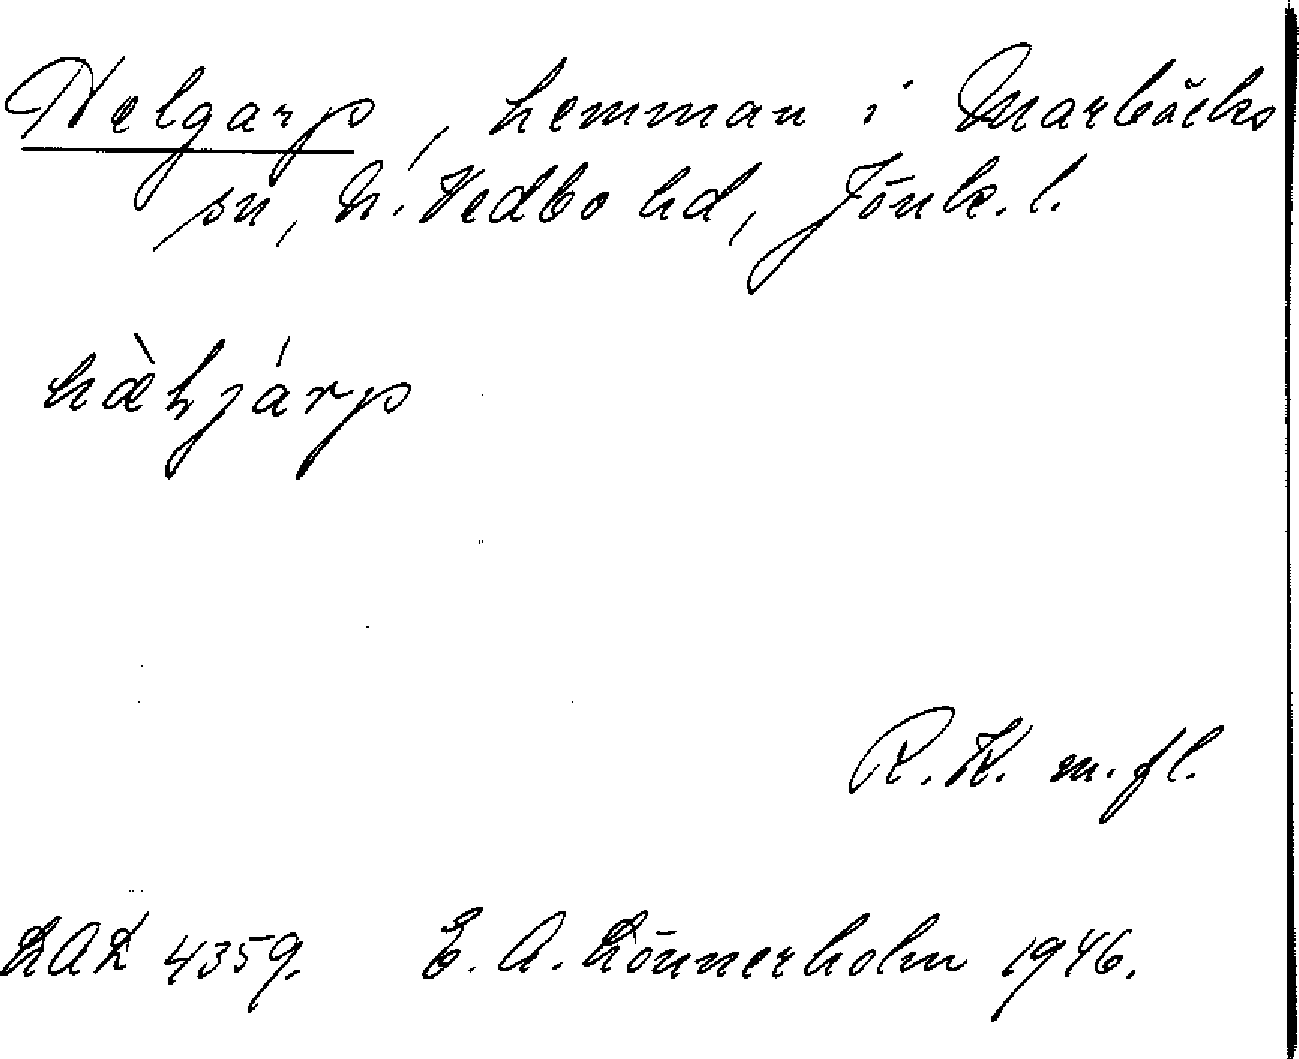 Helgarp, hemman i Marbäcks
sn, N. Vedbo hd, Jönk. l.
hæ̀ljárp
R. K. m. fl.
LAL 4359. E. A. Lönnerholm 1946.